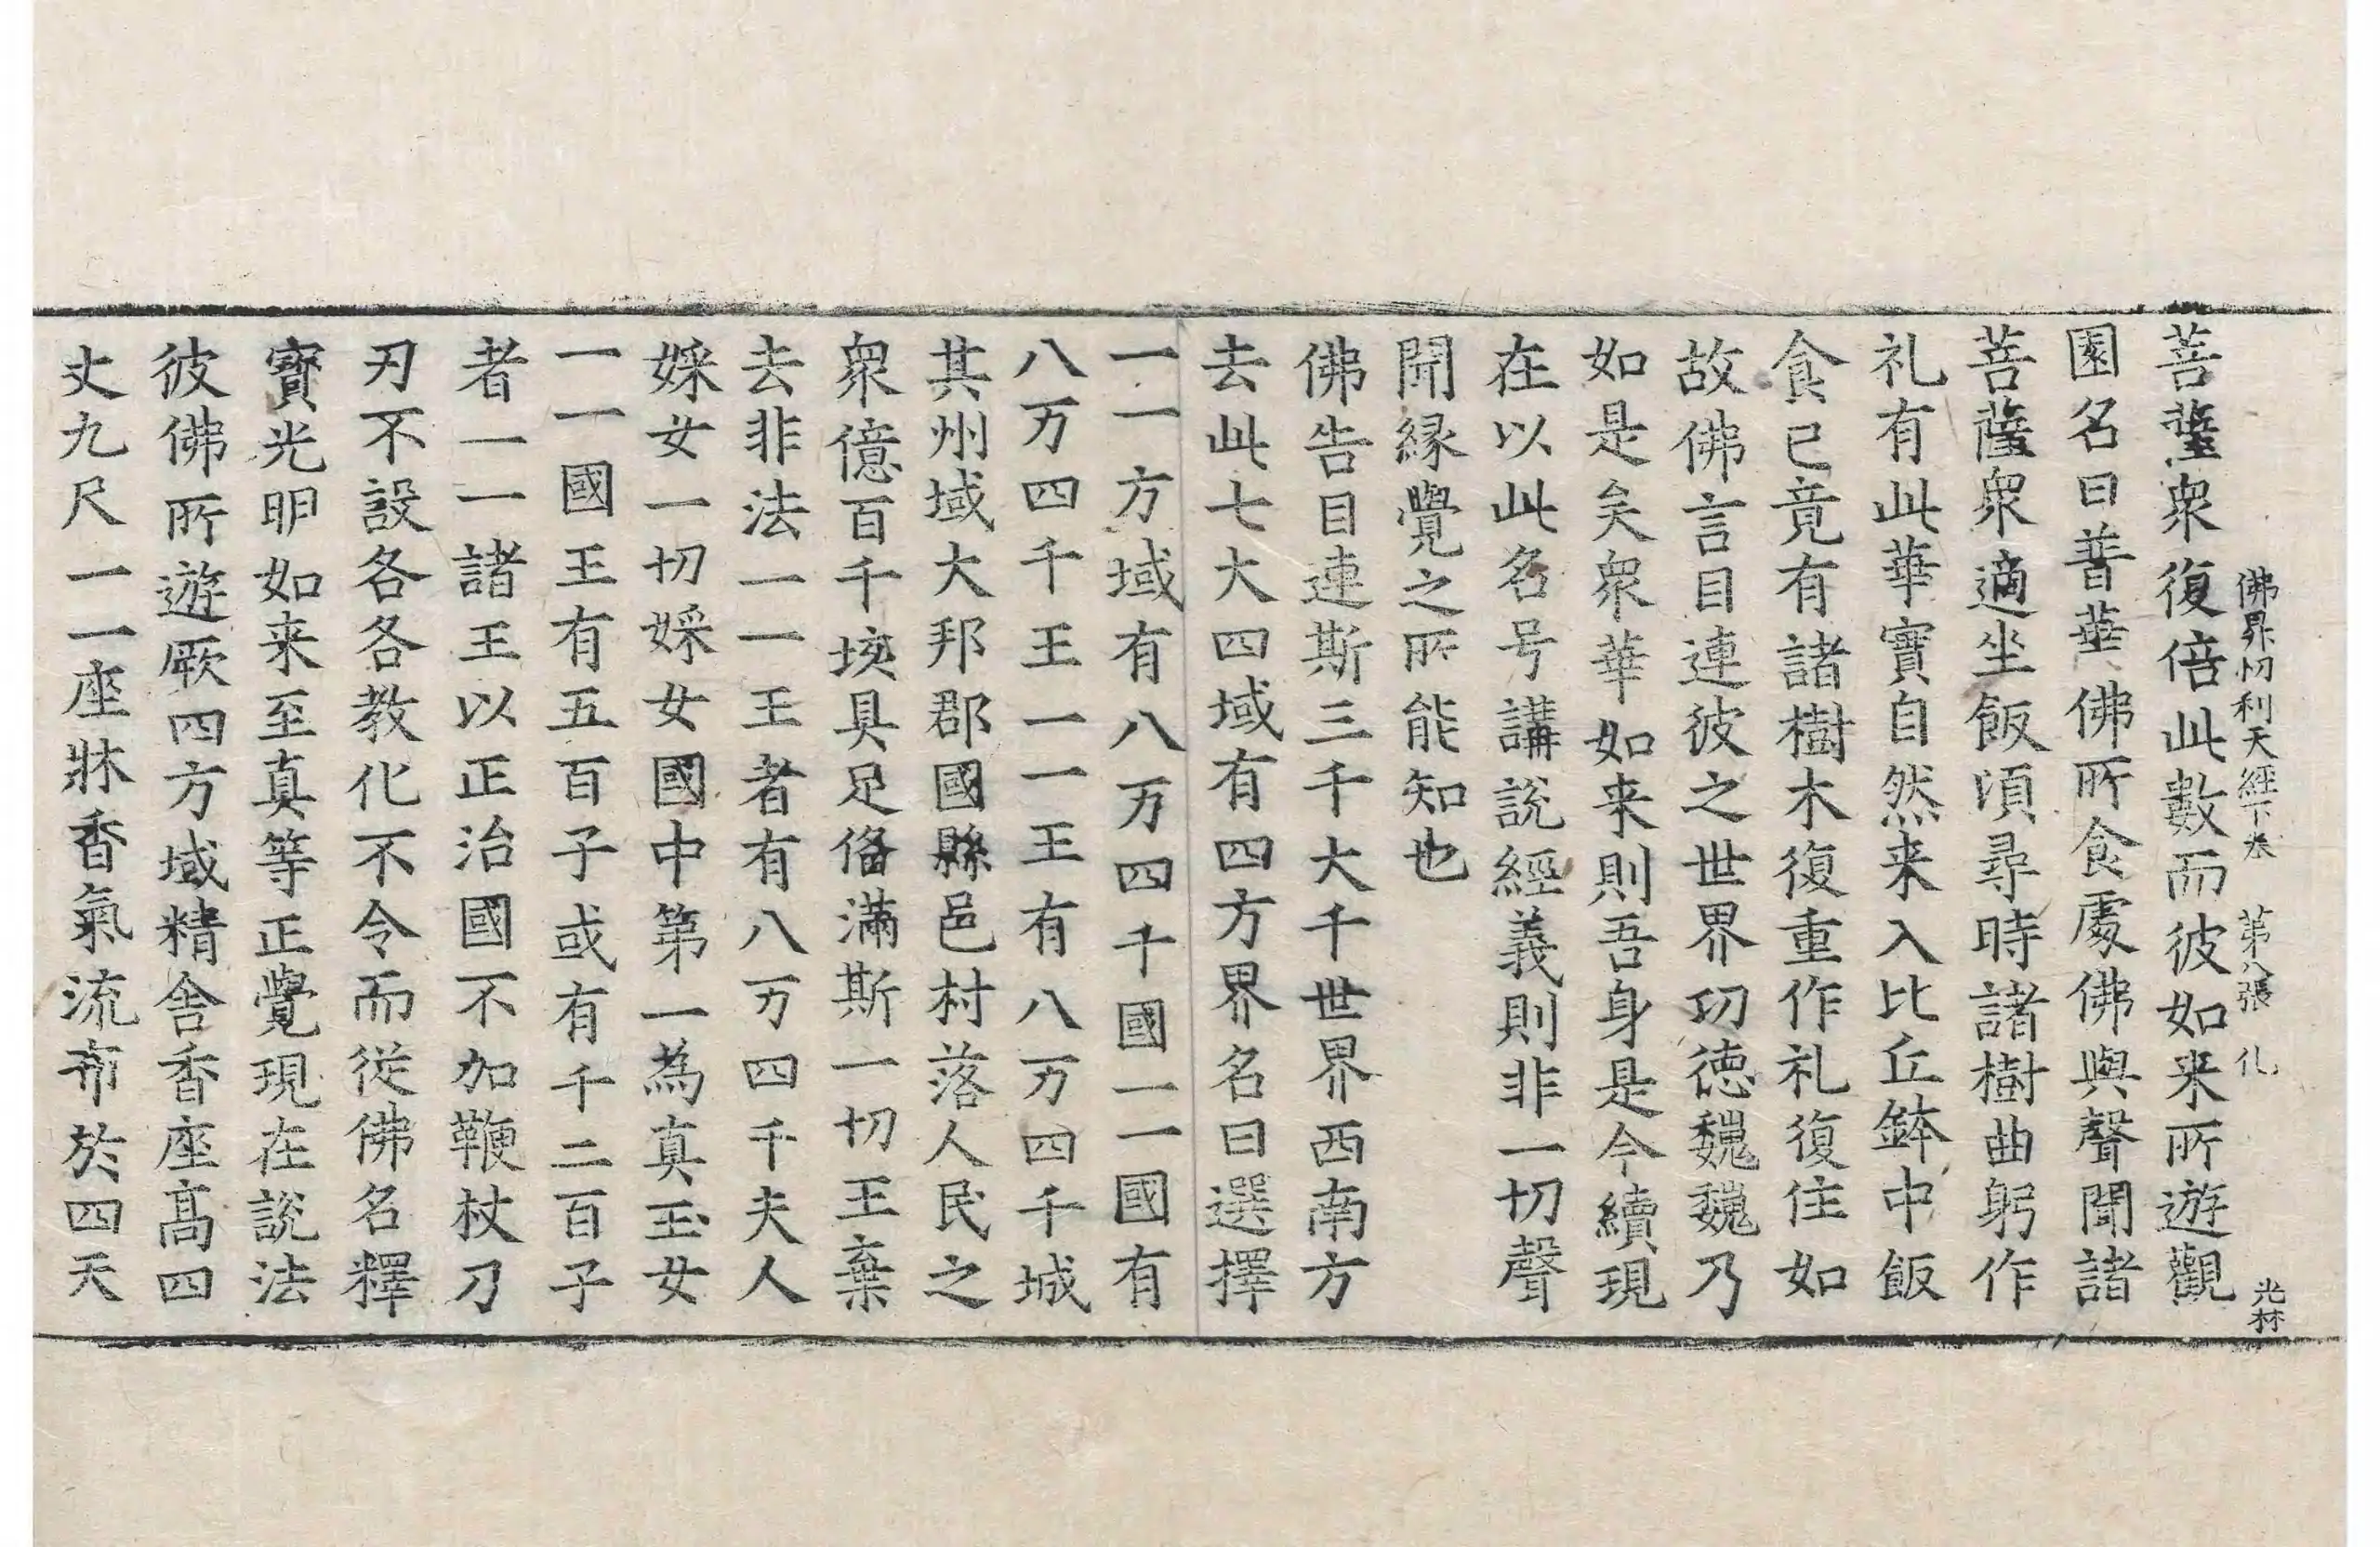 佛昇忉利天經下卷 第八張 化
光林
菩薩衆復倍此數而彼如来所遊觀
園名曰普華佛所食處佛與聲聞諸
菩薩衆適坐飯頃尋時諸樹曲躬作
礼有此華實自然来入比丘鉢中飯
食已竟有諸樹木復重作礼復住如
故佛言目連彼之世界功德巍巍乃
如是矣衆華如来則吾身是今續現
在以此名号講說經義則非一切聲
聞縁覺之所能知也
佛告目連斯三千大千世界西南方
去此七大四域有四方界名曰選擇
一一方域有八万四千國一一國有
八万四千王一一王有八万四千城
其州域大邦郡國縣邑村落人民之
衆億百千垓具足俻滿斯一切王棄
去非法一一王者有八万四千夫人
婇女一切婇女國中第一為真玉女
一一國王有五百子或有千二百子
者一一諸王以正治國不加鞭杖刀
刃不設各各教化不令而從佛名釋
寶光明如来至真等正覺現在說法
彼佛所遊厥四方域精舍香座高四
丈九尺一一座牀香氣流布於四天